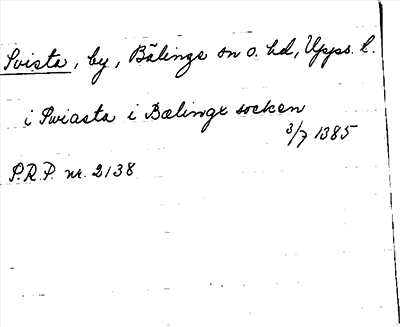 Svista, by, Bälinge sn o. hd, Upps. l.
i Swiasta i Bælinge socken
3/7 1385
P.R.P. nr. 2138